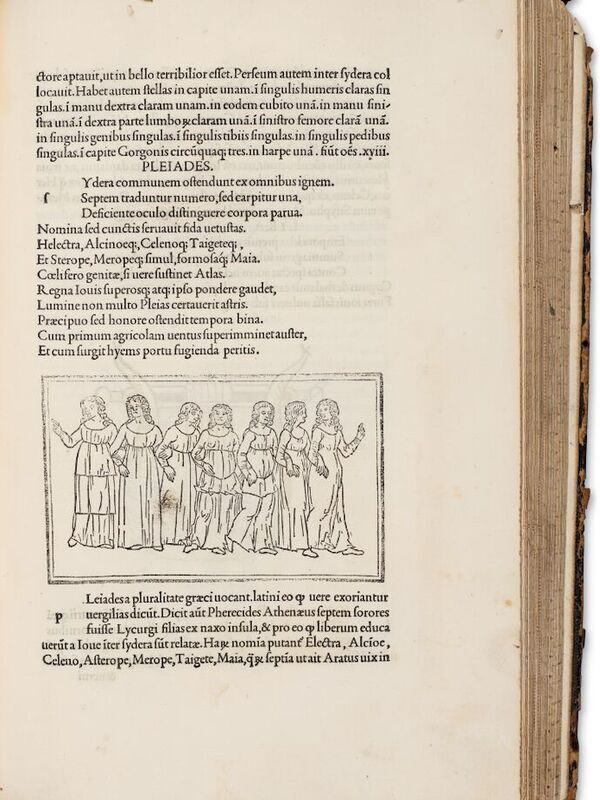 ctore aptauit, ut in bello terribilior esset. Perseum autem inter sydera col
locauit. Habet autem stellas in capite unam. ī singulis humeris claras sin
gulas. ī manu dextra claram unam. in eodem cubito unā. in manu sini-
stra unā. ī dextra parte lumboꝝ claram unā. ī sinistro femore clarā unā.
in singulis genibus singulas. ī singulis tibiis singulas. in singulis pedibus
singulas. ī capite Gorgonis circūquaqꝫ tres. in harpe unā. fiūt oēs .xyiii.
PLEIADES.
Ydera communem ostendunt ex omnibus ignem.
ſ Septem traduntur numero, sed carpitur una,
Deficiente oculo distinguere corpora parua.
Nomina sed cunctis seruauit fida uetustas.
Helectra, Alcinoeqꝫ, Celenoqꝫ Taigeteqꝫ,
Et Sterope, Meropeqꝫ simul, formosaqꝫ Maia.
Cœlifero genitæ, si uere sustinet Atlas.
Regna Iouis superosqꝫ atqꝫ ipso pondere gaudet,
Lumine non multo Pleias certauerit astris.
Præcipuo sed honore ostendit tempora bina.
Cum primum agricolam uentus superimminet auster,
Et cum surgit hyems portu fugienda peritis.
.Leiades a pluralitate græci uocant. latini eo ꝙ uere exoriantur
p uergilias dicūt. Dicit aūt Pherecides Athenæus septem sorores
fuisse Lycurgi filias ex naxo insula, & pro eo ꝙ liberum educa
uerūt a Ioue īter sydera sūt relatæ. Haꝝ nomīa putant Electra, Alcīoe,
Celeno, Asterope, Merope, Taigete, Maia, q̄ꝝ septīa ut ait Aratus uix in